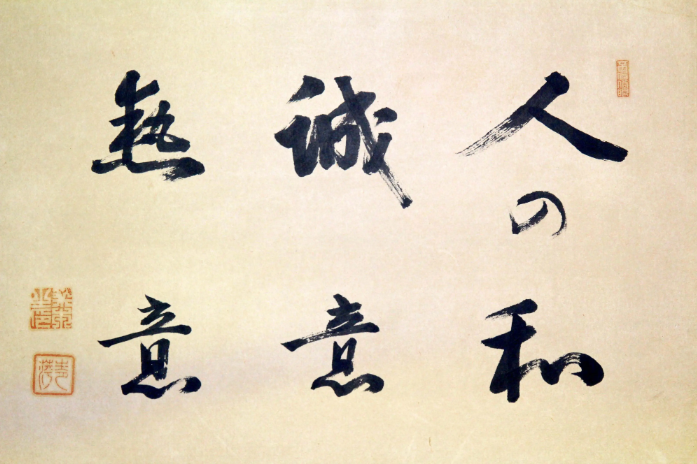 人の和
誠意
熱意